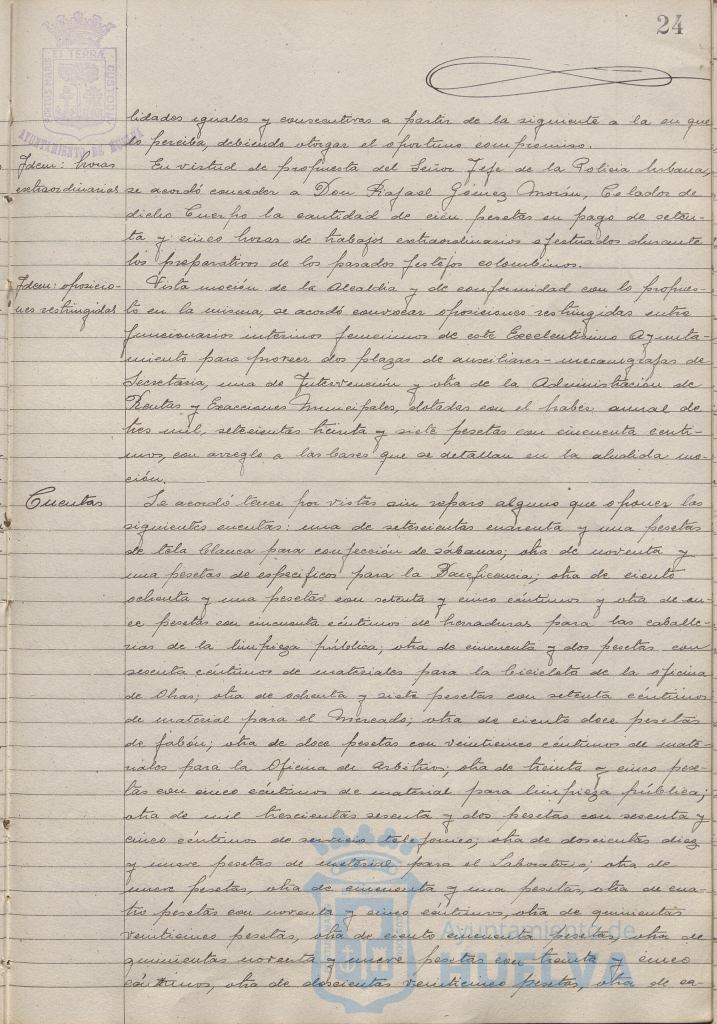 24
PORTUS MARIS ET TERRÆ CUSTODIA
AYUNTAMIENTO DE HUELVA
lidades iguales y consecutivas a partir de la siguiente a la en que
lo perciba, debiendo otorgar el oportuno compromiso.
Idem: horas
extraordinarias
En virtud de propuesta del Señor Jefe de la Policia Urbana,
se acordó conceder a Don Rafael Gómez Morán, Celador de
dicho Cuerpo la cantidad de cien pesetas en pago de seten-
ta y cinco horas de trabajos extraordinarios efectuados durante
los preparativos de los pasados festejos colombinos.
Idem: oposicio-
nes restringidas
Vista moción de la Alcaldia y de conformidad con lo propues-
to en la misma, se acordó convocar oposiciones restringidas entre
funcionarios interinos femeninos de este Excelentísimo Ayunta-
miento para proveer dos plazas de auxiliares-mecanógrafas de
Secretaria, una de Intervención y otra de la Administración de
Rentas y Exacciones Municipales, dotadas con el haber anual de
tres mil, setecientas treinta y siete pesetas con cincuenta centi-
mos, con arreglo a las bases que se detallan en la aludida mo-
ción.
Cuentas
Se acordó tener por vistas sin reparo alguno que oponer las
siguientes cuentas: una de setecientas cuarenta y una pesetas
de tela blanca para confección de sábanas; otra de noventa y
una pesetas de especificos para la Beneficencia; otra de ciento
ochenta y una pesetas con setenta y cinco céntimos y otra de on-
ce pesetas con cincuenta céntimos de herraduras para las caballe-
rias de la limpieza pública; otra de cincuenta y dos pesetas con
sesenta céntimos de materiales para la bicicleta de la oficina
de Obras; otra de ochenta y siete pesetas con setenta céntimos
de material para el Mercado; otra de ciento doce pesetas
de jabón; otra de doce pesetas con veinticinco céntimos de mate-
riales para la Oficina de Arbitrios; otra de treinta y cinco pese-
tas con cinco céntimos de material para limpieza pública;
otra de mil trescientas sesenta y dos pesetas con sesenta y
cinco céntimos de servicio telefónico; otra de doscientas diez
y nueve pesetas de material para el Laboratorio; otra de
nueve pesetas, otra de cincuenta y una pesetas, otra de cua-
tro pesetas con noventa y cinco céntimos, otra de quinientas
veinticinco pesetas, otra de ciento cincuenta pesetas, otra de
quinientas noventa y nueve pesetas con treinta y cinco
céntimos, otra de doscientas veinticinco pesetas, otra de ca-
Ayuntamiento de
HUELVA